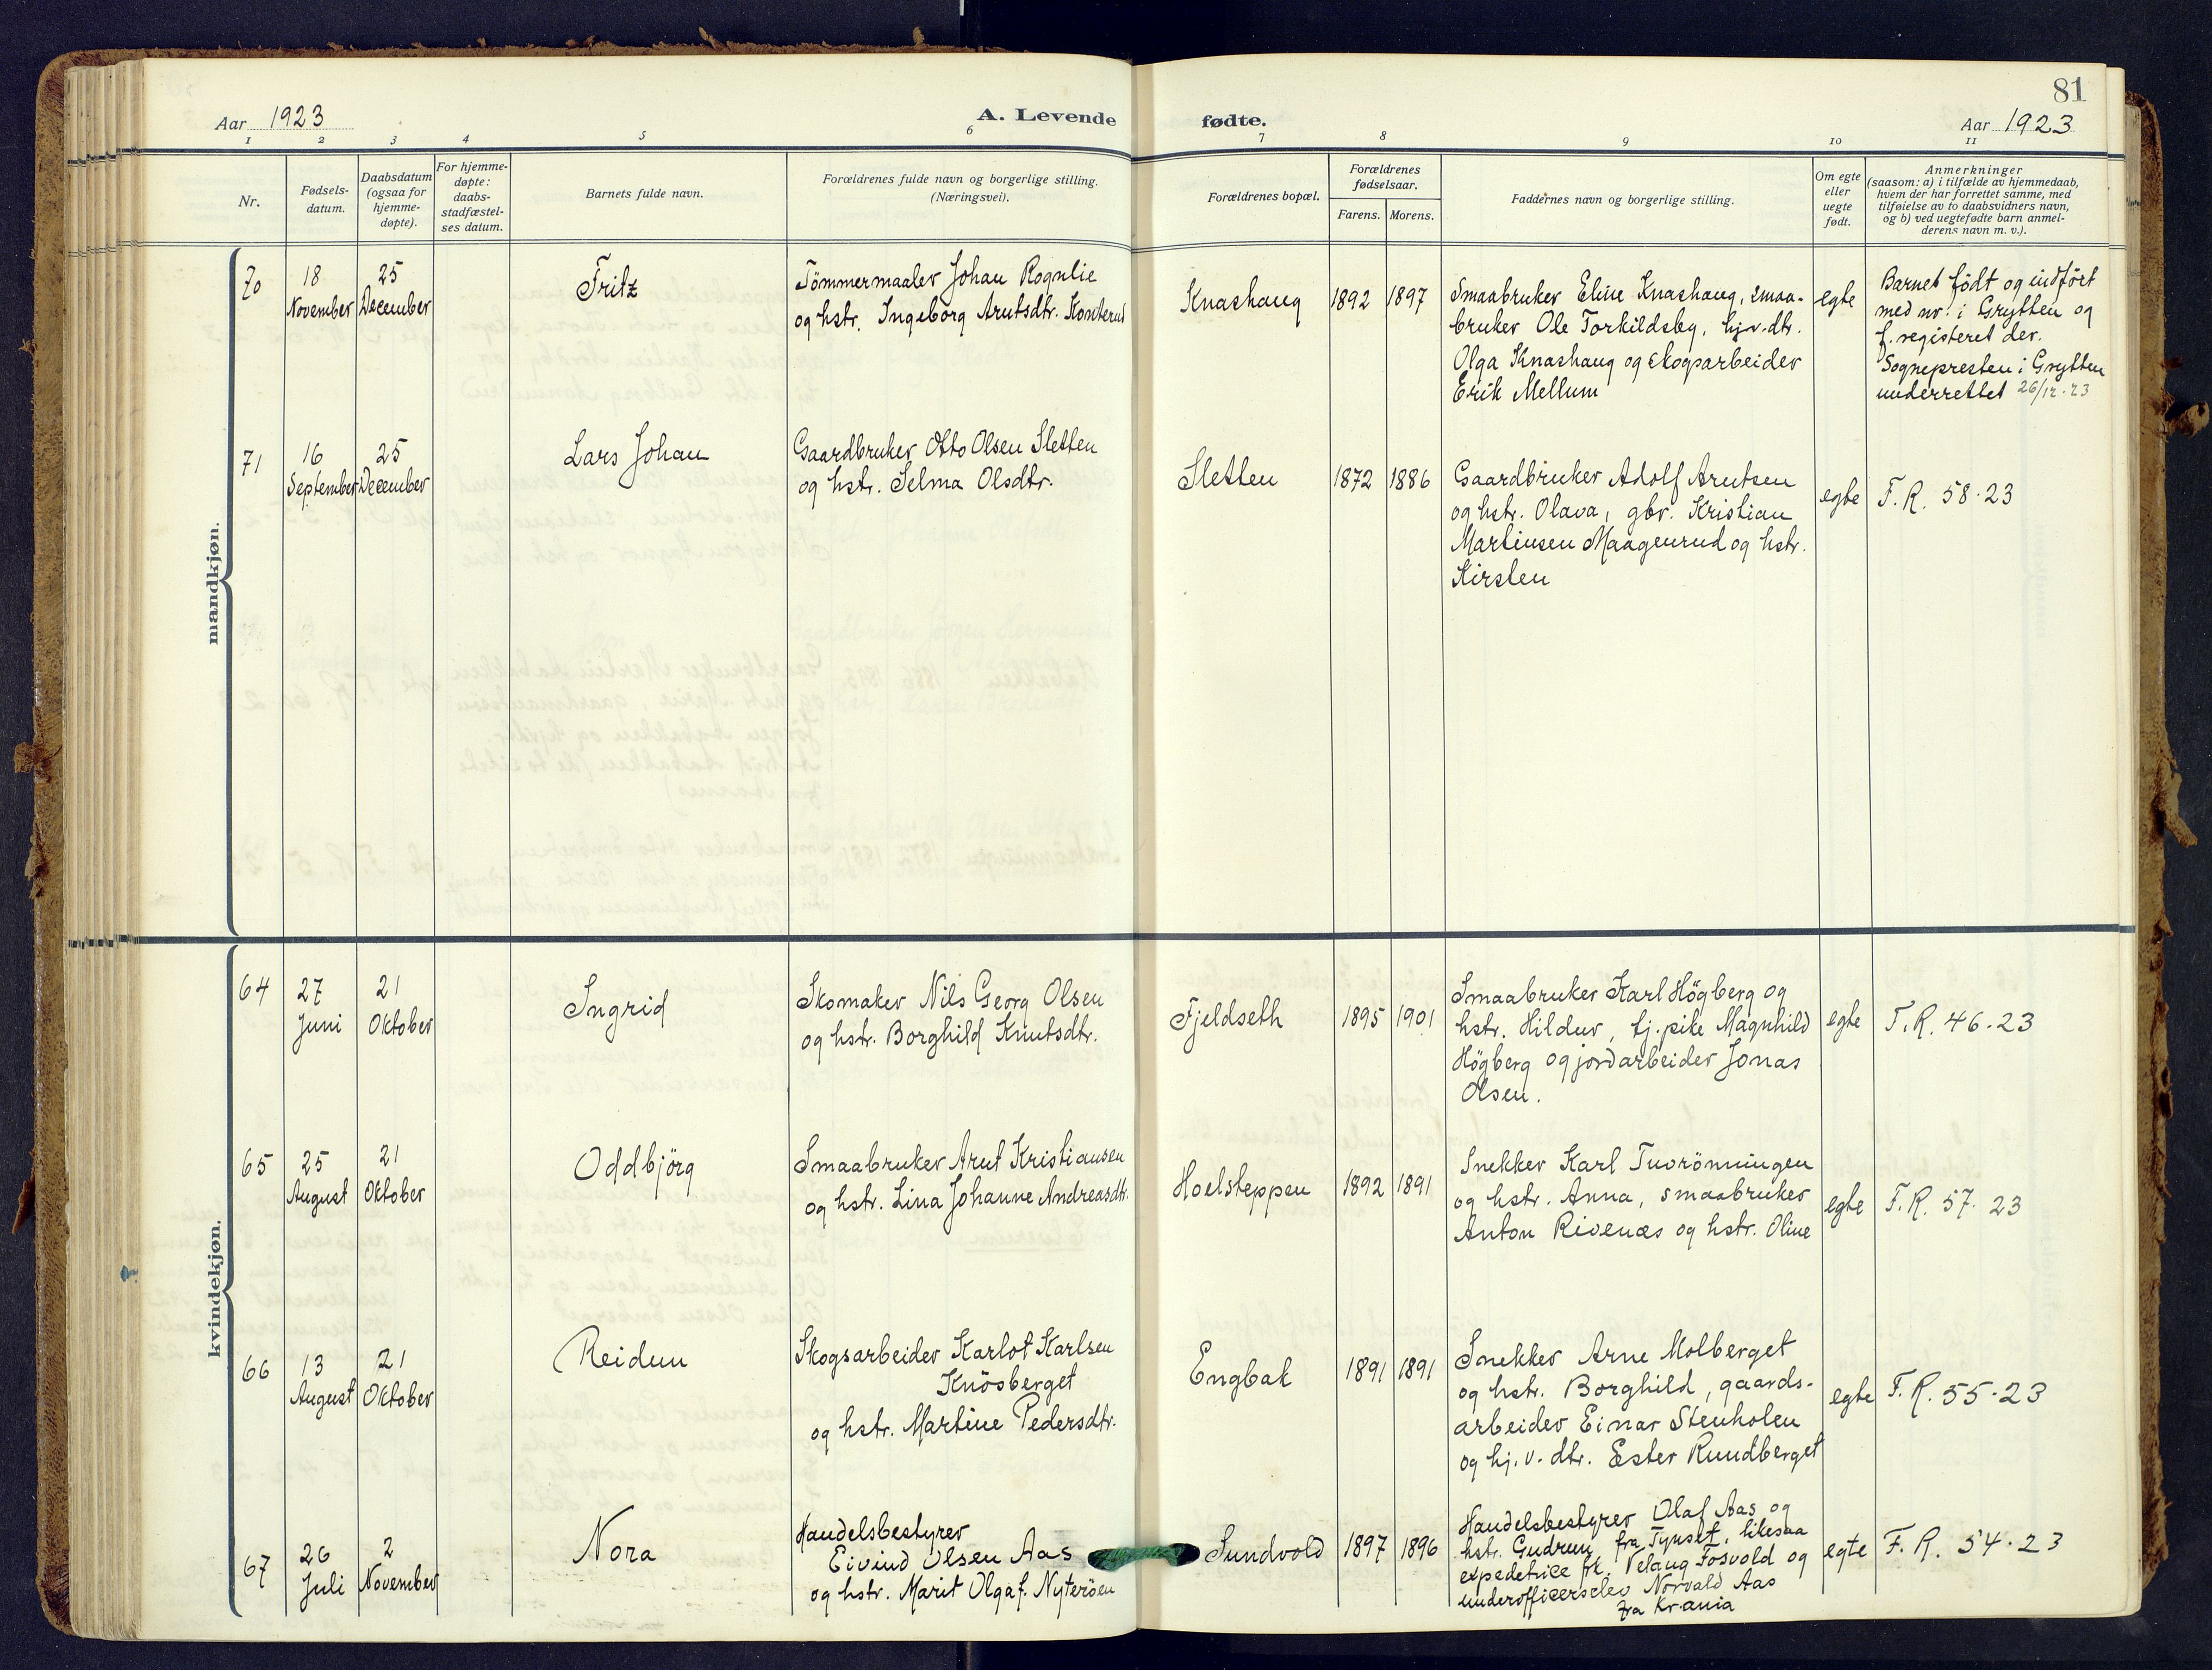 81
Aar 1923
A. Levende
fødte.
Aar 1923
1 2 3 4 5 6 7 8 9 10 11
Nr.
Fødsels-
datum.
Daabsdatum
(ogsaa for
hjemme-
døpte).
For hjemme-
døpte:
daabs-
stadfæstel-
ses datum.
Barnets fulde navn.
Forældrenes fulde navn og borgerlige stilling.
(Næringsvei).
Forældrenes bopæl.
Forældrenes
fødselsaar.
Farens. Morens.
Faddernes navn og borgerlige stilling.
Om egte
eller
uegte
født.
Anmerkninger
(saasom: a) i tilfælde av hjemmedaab,
hvem der har forrettet samme, med
tilføielse av to daabsvidners navn,
og b) ved uegtefødte barn anmel-
derens navn m. v.).
mandkjøn.
70
18
November
25
December
Fritz
Tömmermaaler Johan Rognlie
og hstr. Ingeborg Arntsdtr. Konterud
Knashaug
1892 1897
Smaabruker Eline Knashaug, smaa-
bruker Ole Torkildsby, hj.v.dtr.
Olga Knashaug og skogsarbeider
Erik Mellum
egte
Barnet født og indført
med nr: i Grytten og
f. registeret der.
Sognepresten i Grytten
underrettet 26/12-23
71
16
September
25
December
Lars Johan
Gaardbruker Otto Olsen Sletten
og hstr. Selma Olsdtr.
Sletten
1872 1886
Gaardbruker Adolf Arntsen
og hstr. Olava, gbr. Kristian
Martinsen Maagenrud og hstr.
Kirsten
egte
F. R. 58-23
kvindekjøn.
64
27
Juni
21
Oktober
Ingrid
Skomaker Nils Georg Olsen
og hstr. Borghild Knutsdtr.
Fjeldseth
1895 1901
Smaabruker Karl Högberg og
hstr. Hildur, tj.pike Magnhild
Högberg og jordarbeider Jonas
Olsen.
egte
F. R. 46-23
65
25
August
21
Oktober
Oddbjörg
Smaabruker Arnt Kristiansen
og hstr. Lina Johanne Andreasdtr.
Hoelsteppen
1892 1891
Snekker Karl Tuvrönningen
og hstr. Anna, smaabruker
Anton Rivenæs og hstr. Oline
egte
F. R. 57-23
66
13
August
21
Oktober
Reidun
Skogsarbeider Karlot Karlsen
Knösberget
og hstr. Martine Pedersdtr.
Engbak
1891 1891
Snekker Arne Molberget
og hstr. Borghild, gaards-
arbeider Einar Stenholen
og hj. v. dtr. Ester Rundberget
egte
F. R. 55-23
67
26
Juli
2
November
Nora
Handelsbestyrer
Eivind Olsen Aas
og hstr. Marit Olga f. Nyteröen
Sundvold
1897 1896
Handelsbestyrer Olaf Aas og
hstr. Gudrun fra Tynset, likesaa
expedetrice frk. Velaug Fosvold og
underofficerselev Norvald Aas
fra Kr.ania
egte
F. R. 54-23